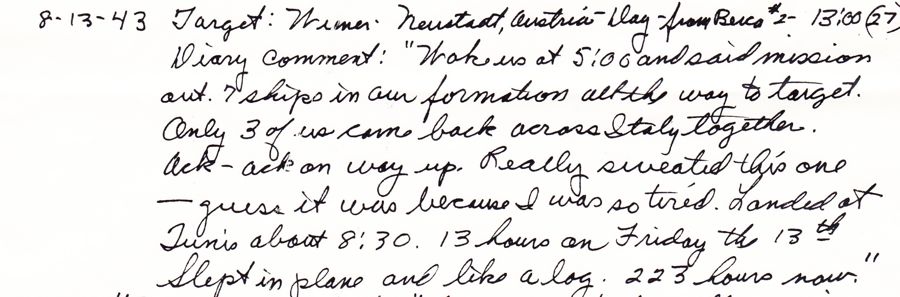 8-13-43 Target: Wiener Neustadt, Austria - Day - from Berca #2 - 13:00 (27)
Diary comment: "Woke us at 5:00 and said mission
out. 7 ships in our formation all the way to target.
Only 3 of us came back across Italy together.
Ack-ack on way up. Really sweated this one
— guess it was because I was so tired. Landed at
Tunis about 8:30. 13 hours on Friday the 13th
Slept in plane and like a log. 223 hours now."